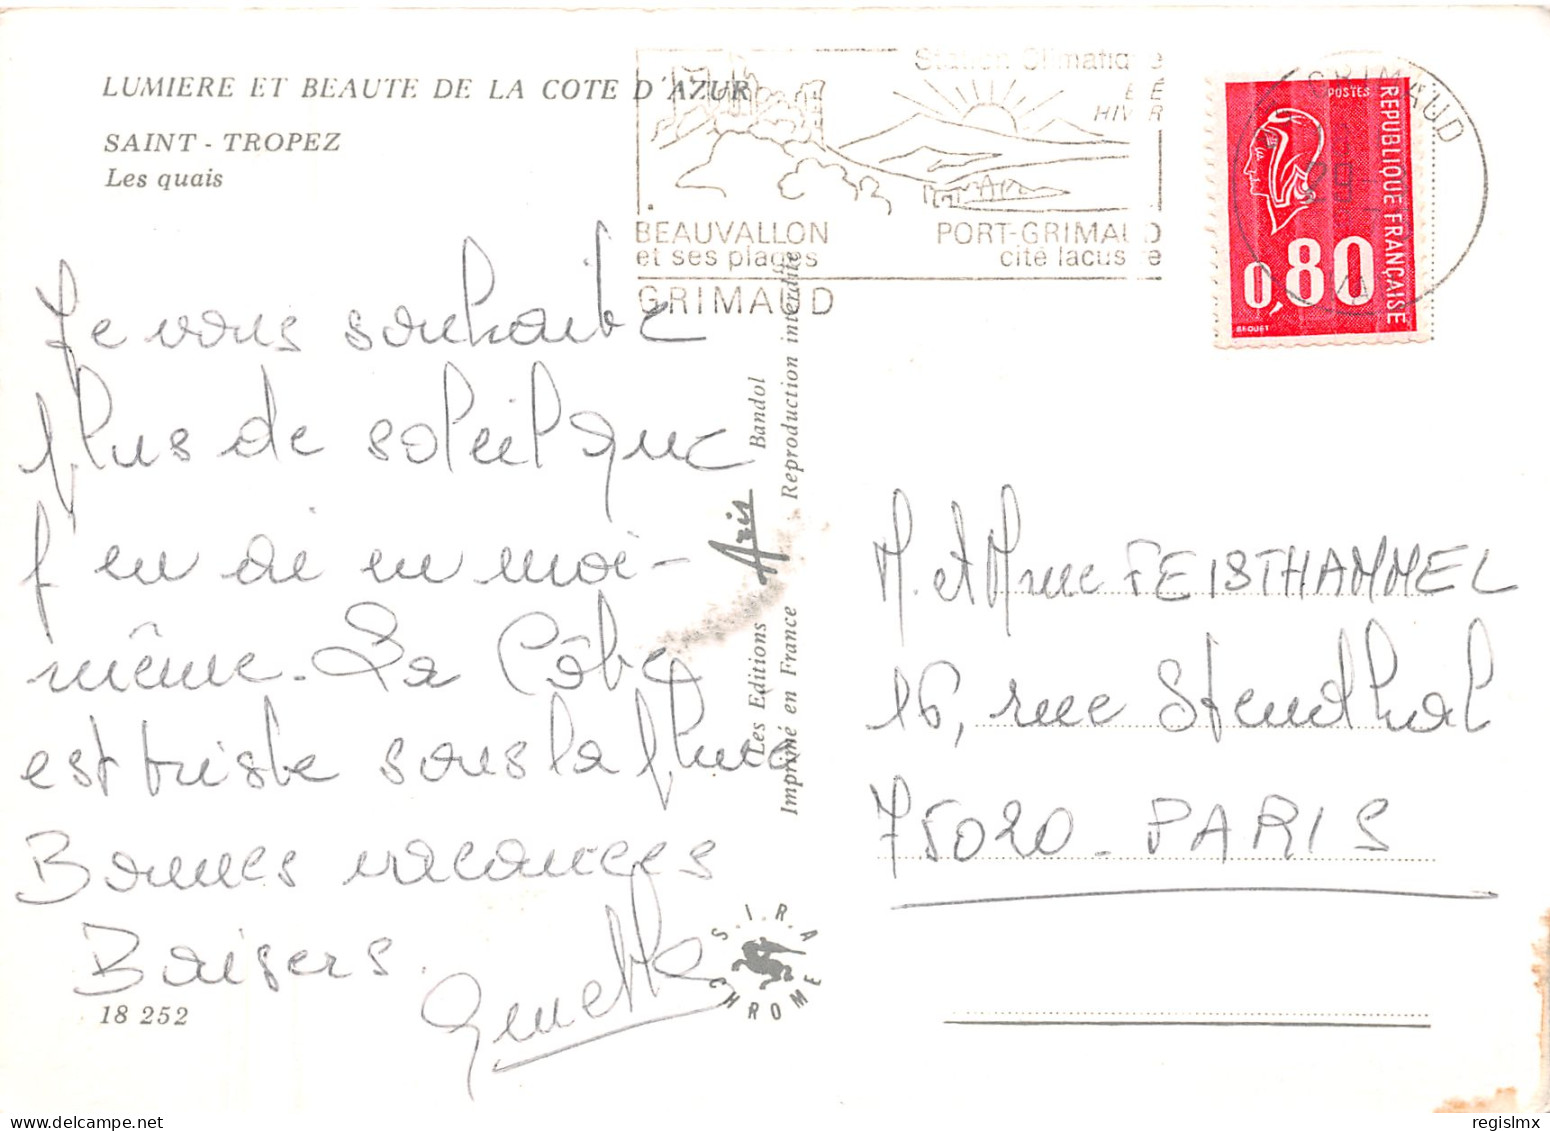 LUMIERE ET BEAUTE DE LA COTE D'AZUR
SAINT - TROPEZ
Les quais
Station Climatique
HIVER
BEAUVALLON
et ses plages
PORT-GRIMAUD
cité lacustre
GRIMAUD
GRIMAUD
29
POSTES
REPUBLIQUE FRANÇAISE
0,80
BEQUET
Je vous souhaite
plus de soleil que
j'en ai en moi-
même. La Côte
est triste sous la pluie
Bonnes vacances
Baisers.
18 252
Les Editions Aris Bandol
Imprimé en France Reproduction interdite
S.I.R.A
CHROME
M. et Mme FEISTHAMMEL
16, rue Stendhal
75020 - PARIS
regislmx